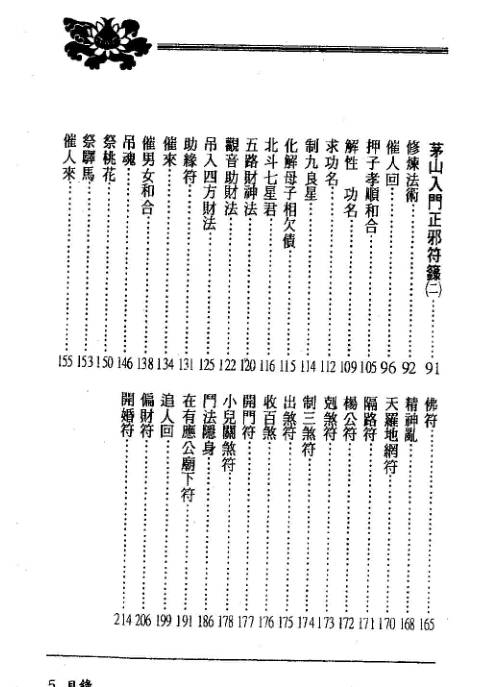 茅山入門正邪符籙(二)……91
修煉法術……92
催人回……96
押子孝順和合……105
解性 功名……109
求功名……112
制九良星……114
化解母子相欠債……115
北斗七星君……116
五路財神法……120
觀音助財法……122
吊入四方財法……125
助緣符……131
催來……134
催男女和合……138
吊魂……146
祭桃花……150
祭驛馬……153
催人來……155
佛符……165
精神亂……168
天羅地網符……170
隔路符……171
楊公符……172
剋煞符……173
制三煞符……174
出煞符……175
收百煞……176
開門符……177
小兒關煞符……178
鬥法隱身……186
在有應公廟下符……191
追人回……199
偏財符……206
開婚符……214
5 目錄